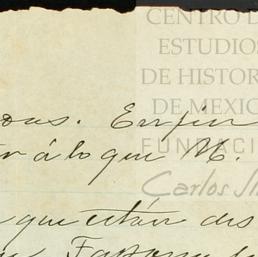 CENTRO D
ESTUDIOS
DE HISTOR
DE MEXIC
FUNDACI
Carlos Sli
das. En fin
á lo que M.
que están des